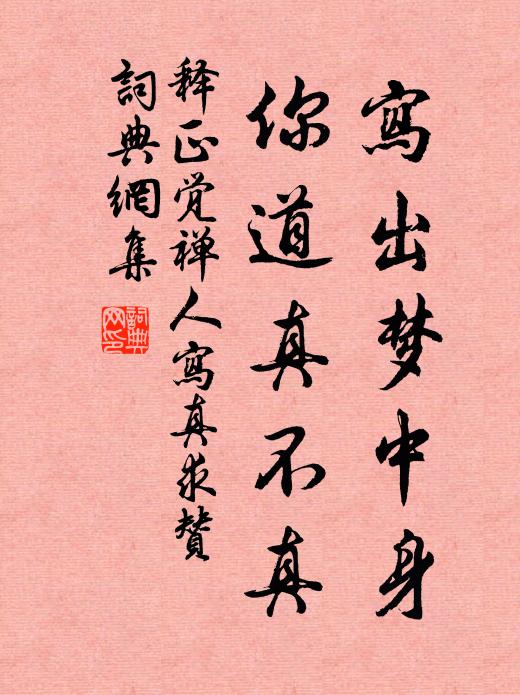 寫出梦中身
你道真不真
释正觉禅人寫真求贊
詞典網集
詞典
网印